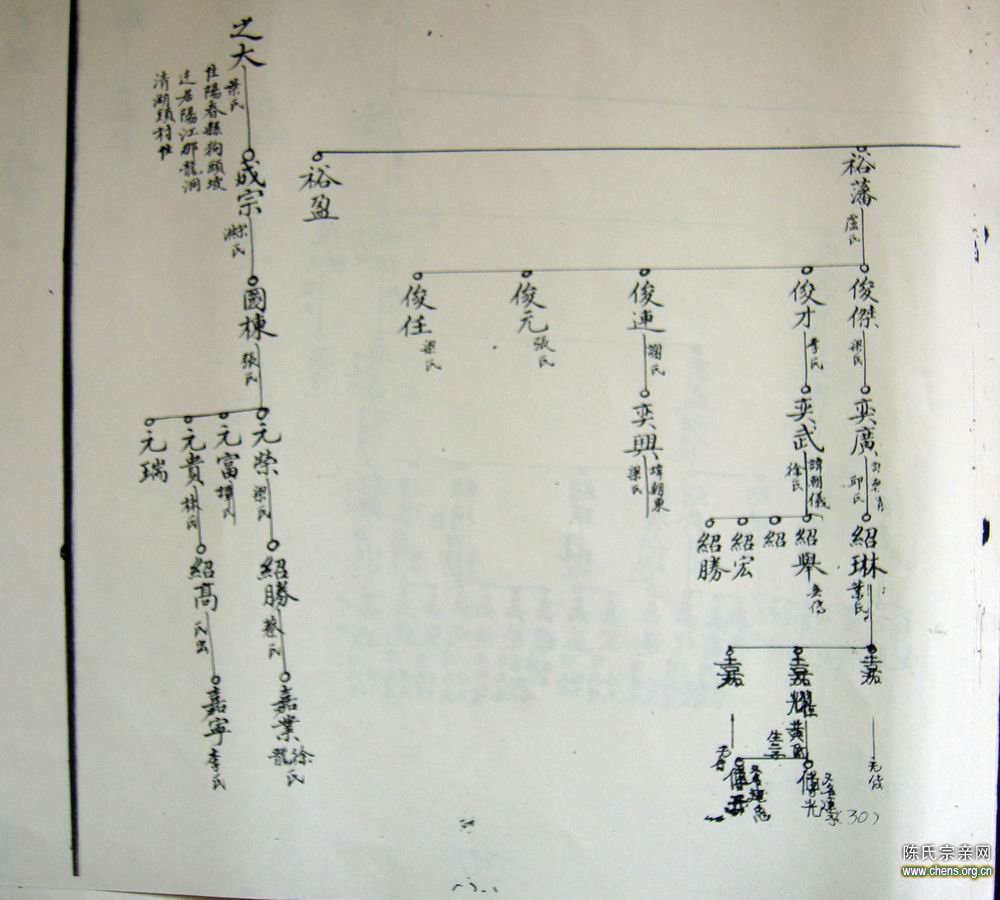 裕藩
盧氏
俊傑
梁氏
奕廣
邱氏
紹琳
葉氏
嘉
俊才
李氏
奕武
諱朝儀
徐氏
紹舉
紹
紹宏
紹勝
嘉耀
黃氏
生二子
傳光
嘉
傳
俊連
謝氏
奕興
諱朝東
梁氏
俊元
張氏
俊任
梁氏
裕盈
之大
葉氏
住陽春縣狗頭坡
遷居陽江那龍洞
清湖頭村住
成宗
氏
國棟
張氏
元榮
梁氏
紹勝
蔡氏
嘉業
徐氏
龍
元富
譚氏
元貴
林氏
紹高
氏出
嘉寧
李氏
元瑞
(30)
陈氏宗亲网
www.chens.org.cn